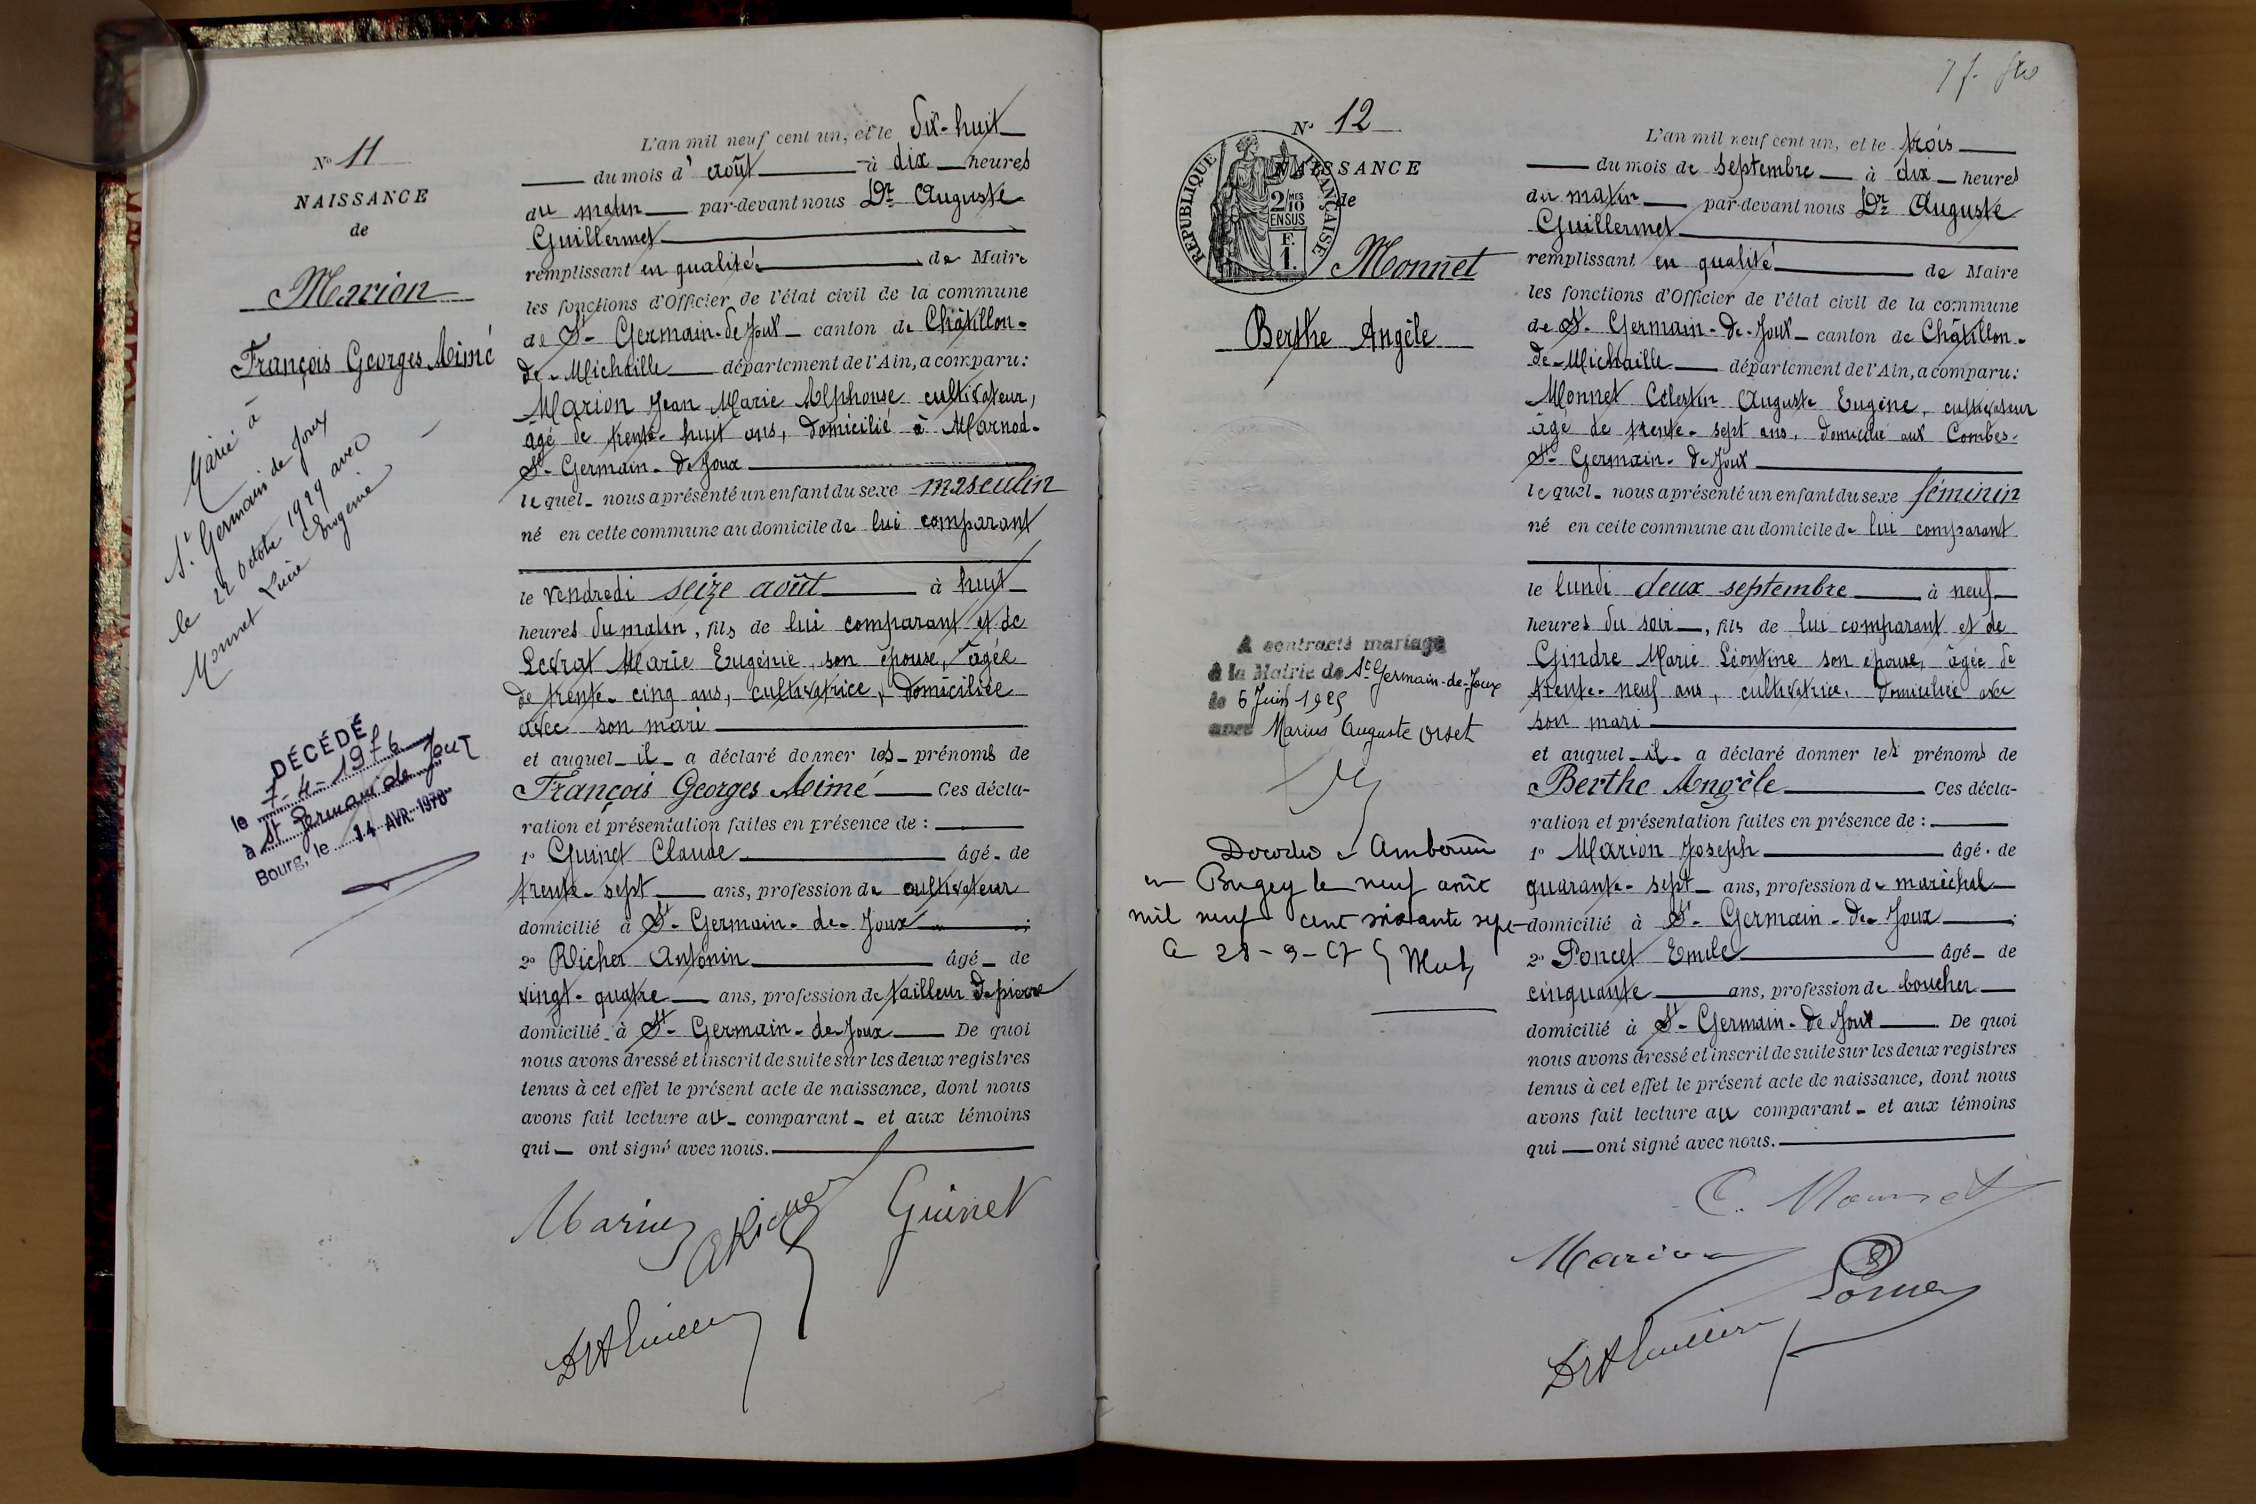 N° 11
NAISSANCE
de
Marion
François Georges Aimé
Marié à
St Germain de Joux
le 22 octobre 1929 avec
Monnet Lucie Eugénie
DÉCÉDÉ
le 7-4-1976
à St Germain de Joux
Bourg, le 14 AVR. 1976
L'an mil neuf cent un, et le dix-huit
du mois d'août à dix heures
du matin par-devant nous Dr Auguste
Guillermet
remplissant en qualité de Maire
les fonctions d'Officier de l'état civil de la commune
de St-Germain-de-Joux canton de Châtillon-
de-Michaille département de l'Ain, a comparu:
Marion Jean Marie Alphonse cultivateur,
âgé de trente-huit ans, domicilié à Marnod-
St-Germain-de-Joux
lequel nous a présenté un enfant du sexe masculin
né en cette commune au domicile de lui comparant
le vendredi seize août à huit
heures du matin, fils de lui comparant et de
Levrat Marie Eugénie, son épouse, âgée
de trente-cinq ans, cultivatrice, domiciliée
avec son mari
et auquel il a déclaré donner les prénoms de
François Georges Aimé Ces décla-
ration et présentation faites en présence de :
1° Guinet Claude âgé de
trente-sept ans, profession de cultivateur
domicilié à St-Germain-de-Joux ;
2° Richer Antonin âgé de
vingt-quatre ans, profession de tailleur de pierre
domicilié à St-Germain-de-Joux De quoi
nous avons dressé et inscrit de suite sur les deux registres
tenus à cet effet le présent acte de naissance, dont nous
avons fait lecture au comparant et aux témoins
qui ont signé avec nous.
Marion A Richer Guinet
Dr A Guillermet
N° 12
NAISSANCE
de
RÉPUBLIQUE FRANÇAISE
2/10 MES
EN SUS
F.
1.
Monnet
Berthe Angèle
A contracté mariage
à la Mairie de St Germain-de-Joux
le 6 Juin 1925
avec Marius Auguste Orset
Décédée à Ambérieu
en Bugey le neuf août
mil neuf cent soixante sept
L'an mil neuf cent un, et le trois
du mois de septembre à dix heures
du matin par-devant nous Dr Auguste
Guillermet
remplissant en qualité de Maire
les fonctions d'Officier de l'état civil de la commune
de St-Germain-de-Joux canton de Châtillon-
de-Michaille département de l'Ain, a comparu:
Monnet Célestin Auguste Eugène, cultivateur
âgé de trente-sept ans, domicilié aux Combes-
St-Germain-de-Joux
lequel nous a présenté un enfant du sexe féminin
né en cette commune au domicile de lui comparant
le lundi deux septembre à neuf
heures du soir, fils de lui comparant et de
Gindre Marie Léontine son épouse, âgée de
trente-neuf ans, cultivatrice, domiciliée avec
son mari
et auquel il a déclaré donner les prénoms de
Berthe Angèle Ces décla-
ration et présentation faites en présence de :
1° Marion Joseph âgé de
quarante-sept ans, profession de maréchal
domicilié à St-Germain-de-Joux ;
2° Poncet Emile âgé de
cinquante ans, profession de boucher
domicilié à St-Germain-de-Joux. De quoi
nous avons dressé et inscrit de suite sur les deux registres
tenus à cet effet le présent acte de naissance, dont nous
avons fait lecture au comparant et aux témoins
qui ont signé avec nous.
C. Monnet
Marion
Poncet
Dr A Guillermet